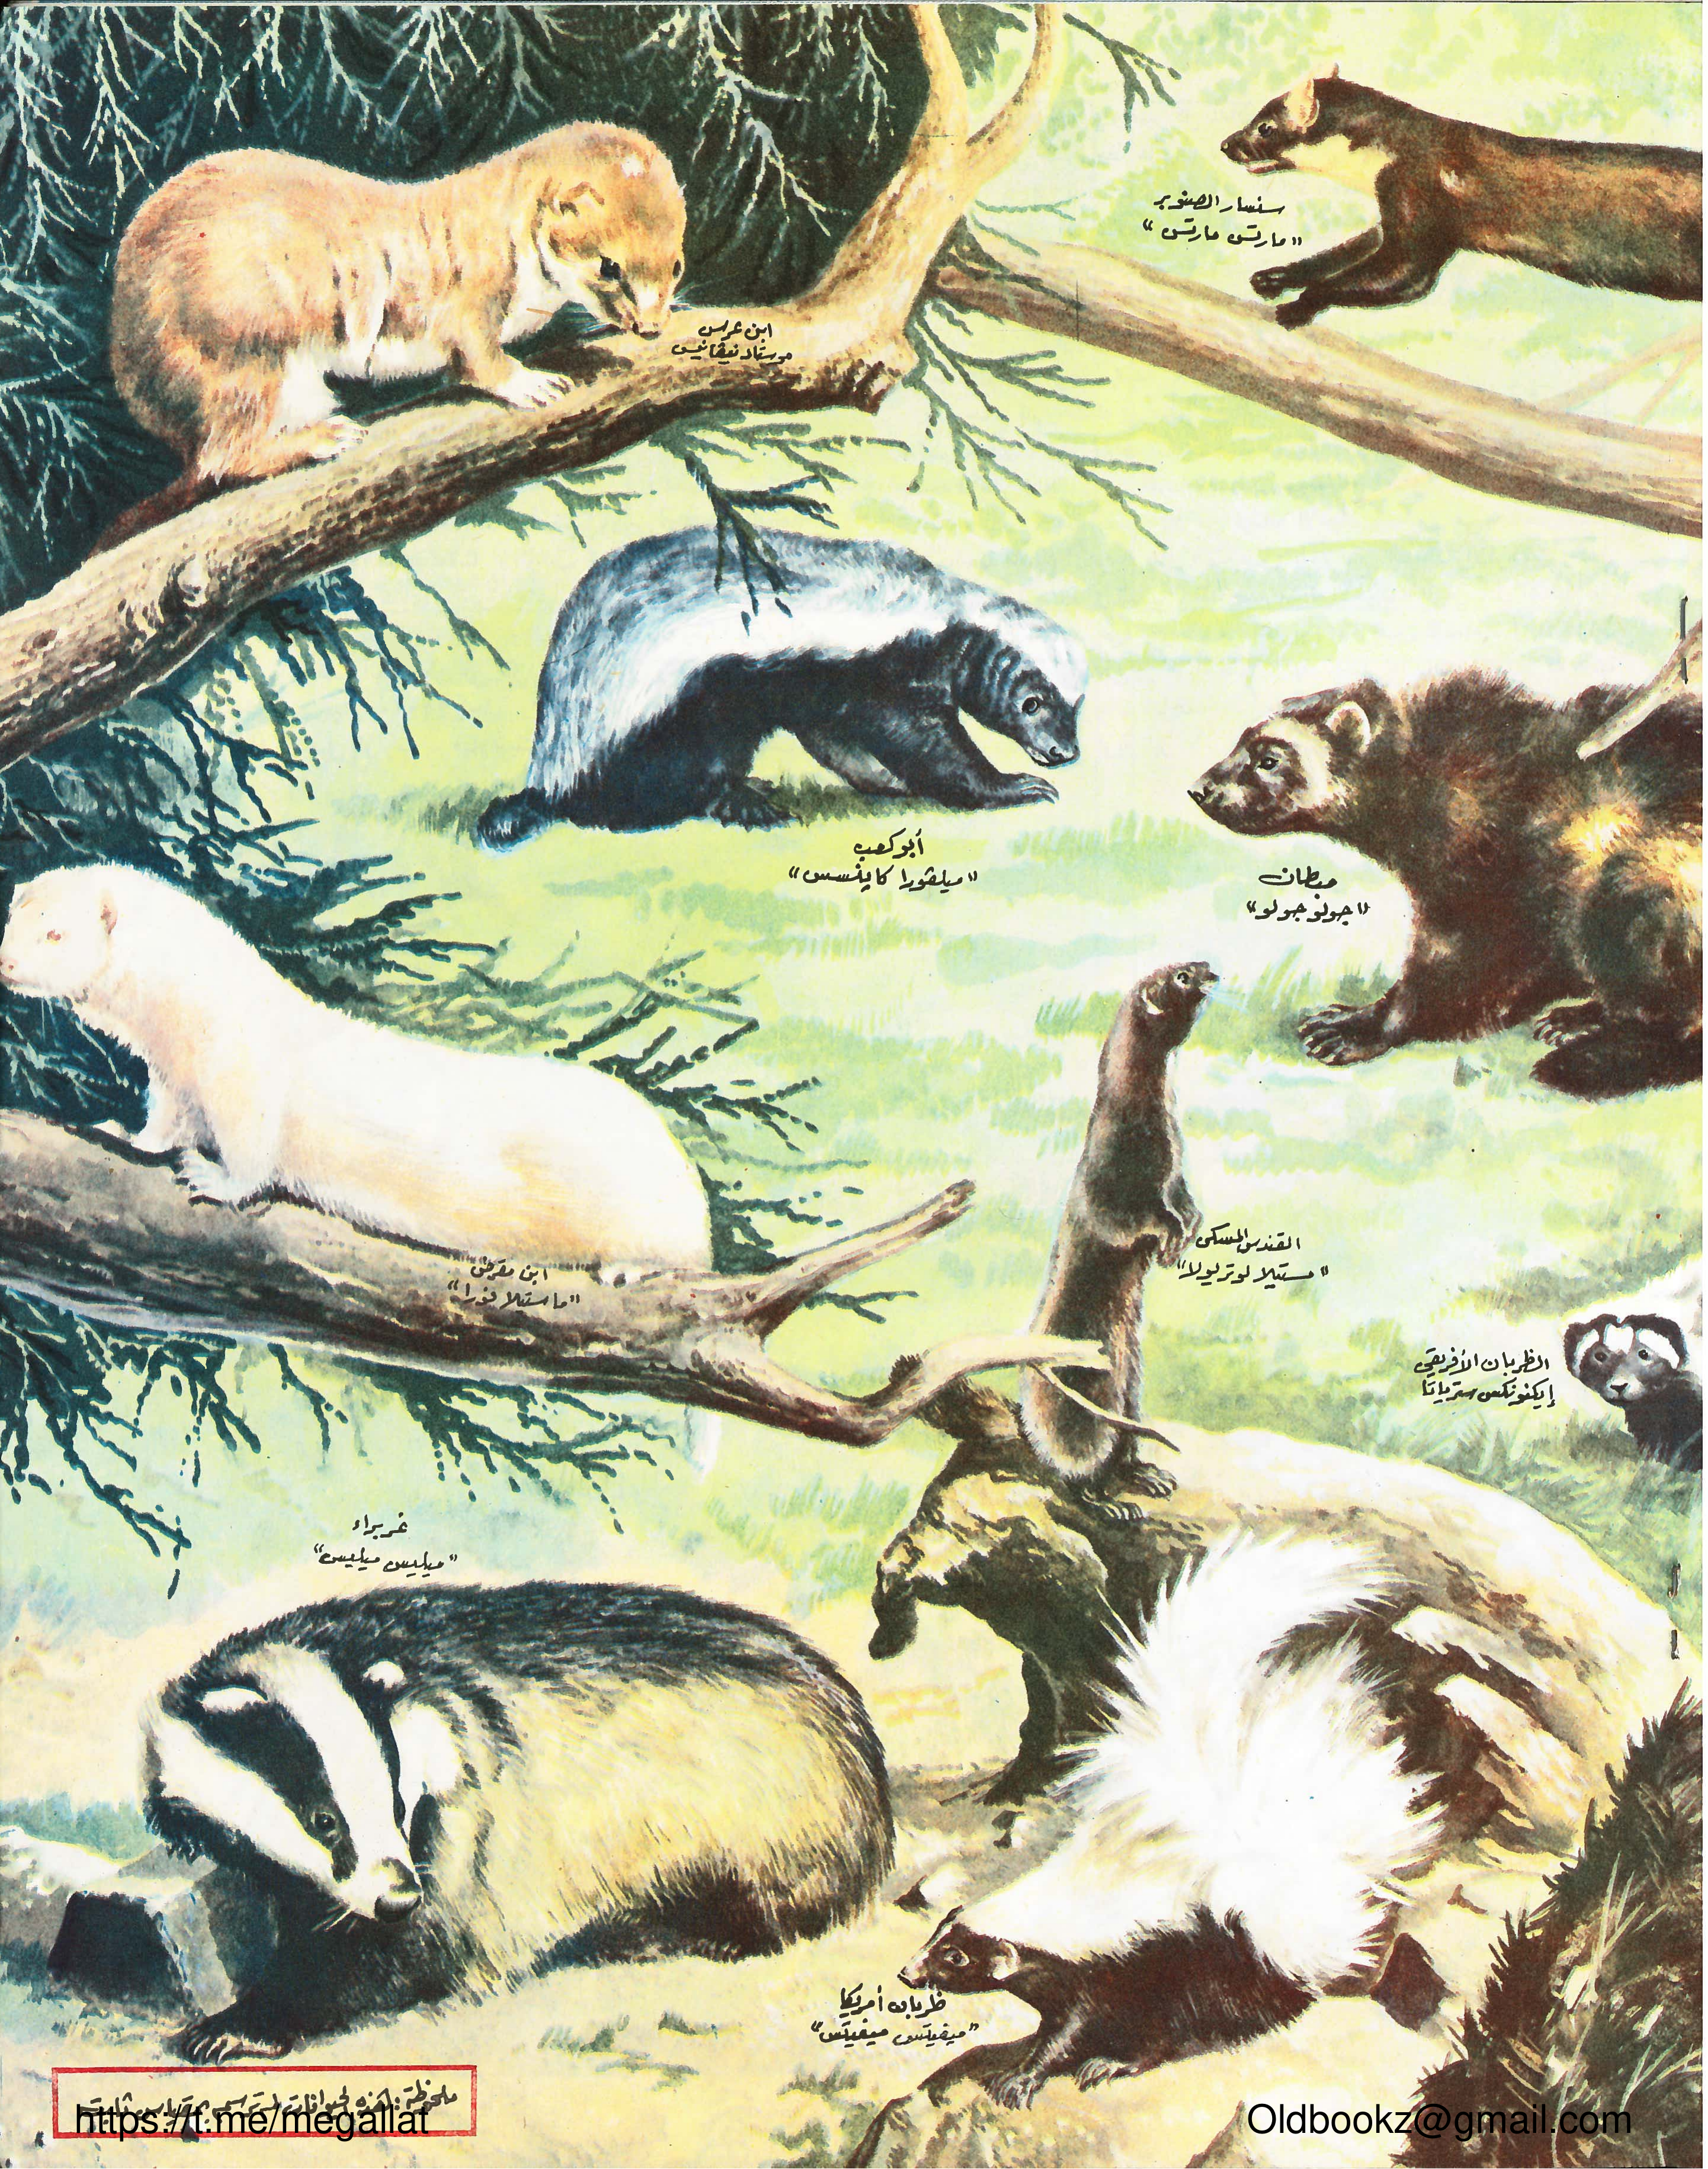 سنسار الصنوبر
"مارتس مارتس"
ابن عرس
موستلا نيڤاليس
أبو كعب
"ميلڤورا كاپنسس"
"جولو جولو"
القندس المسكى
"مستيلا لوتريولا"
ابن مقرض
"ماستيلا فورا"
الظربان الأفريقي
إيكنونكس سترياتا
غريراء
"ميليس ميليس"
ظربان أمريكا
"ميفيتس ميفيتس"
ملحوظة: هذه الحيوانات لم ترسم بمقياس ثابت
https://t.me/megallat
Oldbookz@gmail.com